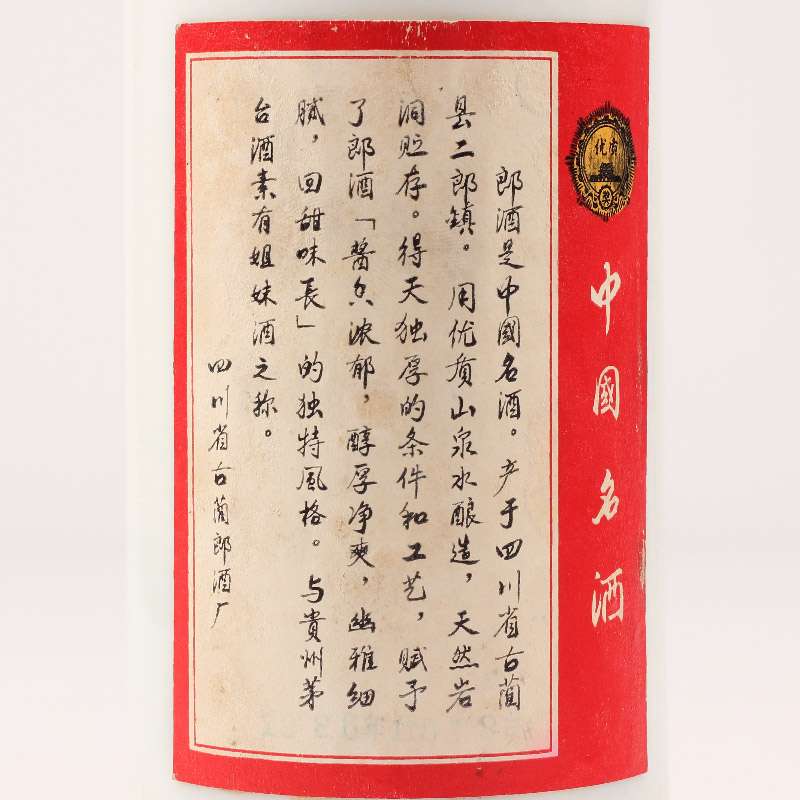 郎酒是中國名酒。产于四川省古蔺
县二郎镇。用优质山泉水酿造，天然岩
洞贮存。得天独厚的条件和工艺，赋予
了郎酒「酱香浓郁，醇厚净爽，幽雅细
腻，回甜味長」的独特風格。与貴州茅
台酒素有姐妹酒之称。
四川省古蔺郎酒厂
中國名酒